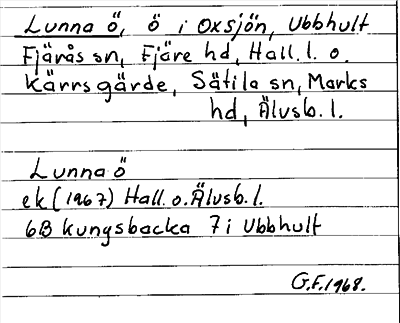 Lunna ö, ö i Oxsjön, Ubbhult
Fjärås sn, Fjäre hd, Hall. l. o.
Kärrsgärde, Sätila sn, Marks
hd, Älvsb. l.
Lunna ö
ek (1967) Hall. o. Älvsb. l.
6B Kungsbacka 7 i Ubbhult
G.F. 1968.